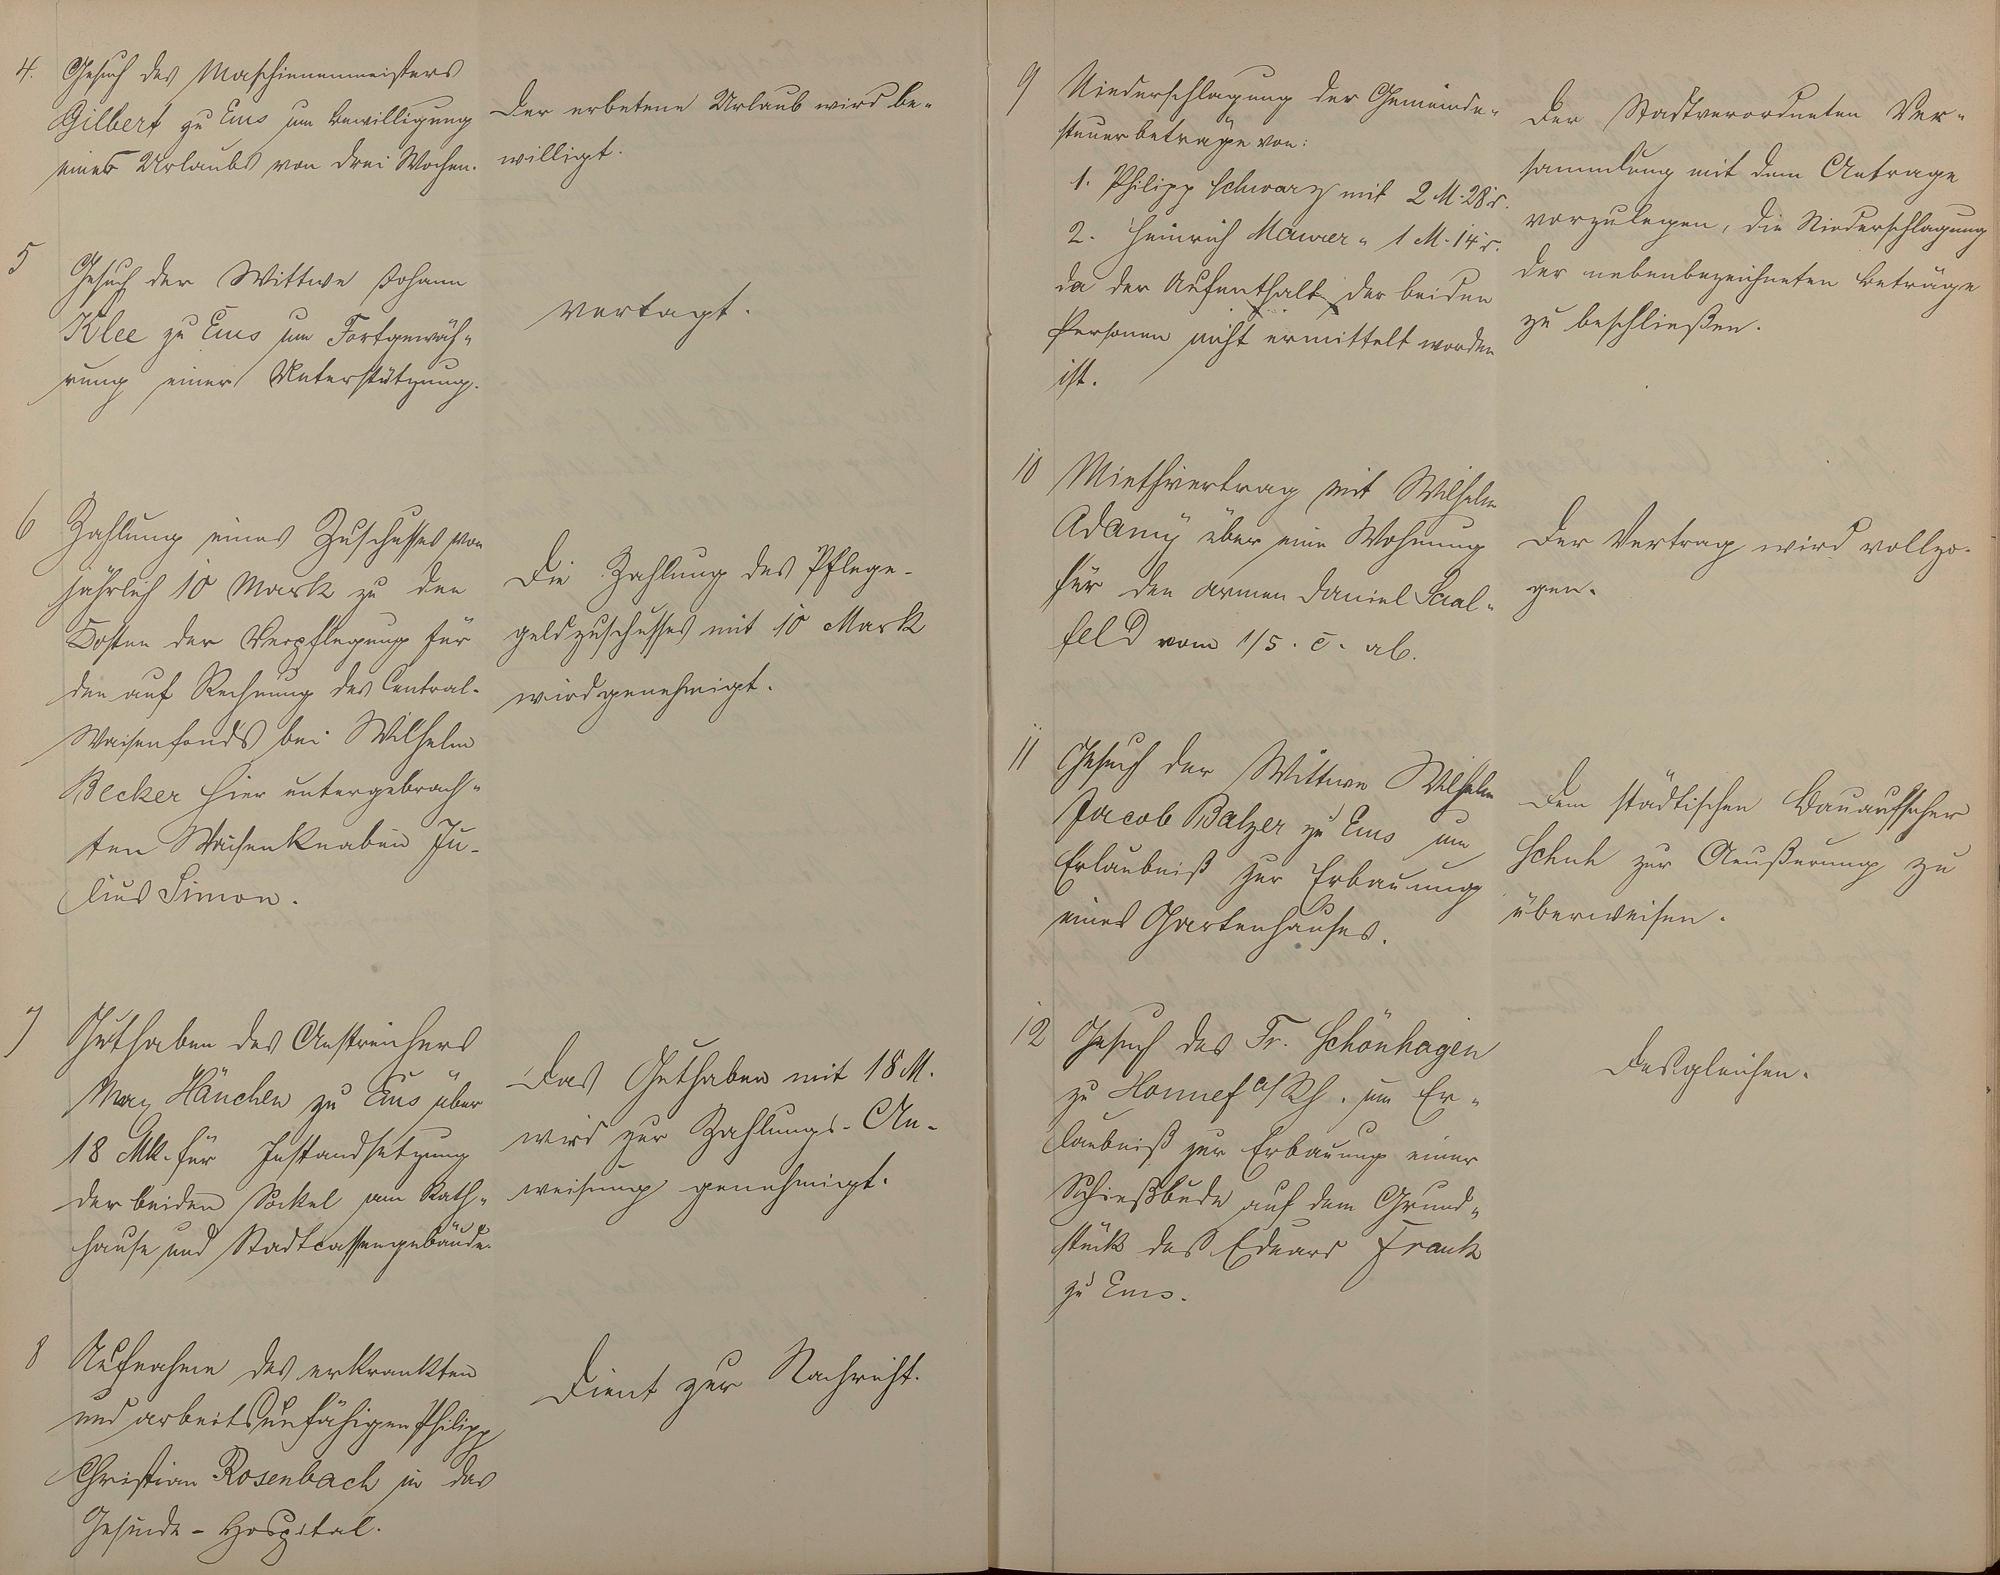 4. Gesuch des Maschienenmeisters
Gilbert zu Ems um Bewilligung
eines Urlaubs von drei Wochen.
Der erbetene Urlaub wird be-
willigt.
5
Gesuch der Wittwe Johann
Klee zu Ems um Fortgewäh-
rung einer Unterstützung.
Vertagt.
6 Zahlung eines Zuschusses von
jährlich 10 Mark zu den
Kosten der Verpflegung für
den auf Rechnung des Central-
Waisenfonds bei Wilhelm
Becker hier untergebrach-
ten Waisenknaben Ju-
lius Simon.
Die Zahlung des Pflege-
geldzuschusses mit 10 Mark
wird genehmigt.
7 Guthaben des Anstreichers
Max Hänchen zu Ems über
18 Mk. für Instandsetzung
der beiden Sockel am Rath-
hause und Stadtcassengebäude.
Das Guthaben mit 18 M.
wird zur Zahlungs-An-
weisung genehmigt.
8 Aufnahme des erkrankten
und arbeitsunfähigen Philipp
Christian Rosenbach in das
Gesinde-Hospital.
Dient zur Nachricht.
9 Niederschlagung der Gemeinde-
steuerbeträge von:
1. Philipp Schwarz mit 2 M. 28 d.
2. Heinrich Maurer " 1 M. 14 d.
da der Aufenthalt der beiden
Personen nicht ermittelt worden
ist.
Der Stadtverordneten Ver-
sammlung mit dem Antrage
vorzulegen, die Niederschlagung
der nebenbezeichneten Beträge
zu beschließen.
10 Miethvertrag mit Wilhelm
Adamy über eine Wohnung
für den armen Daniel Saal-
feld vom 1/5. c. ab.
Der Vertrag wird vollzo-
gen.
11 Gesuch der Wittwe Wilhelm
Jacob Balzer zu Ems um
Erlaubniß zur Erbauung
eines Gartenhauses.
Dem städtischen Bauaufseher
Schuh zur Aeußerung zu
überweisen.
12 Gesuch des Fr. Schönhagen
zu Honnef a/Rh. um Er-
laubniß zur Erbauung einer
Schießbude auf dem Grund-
stück des Eduard Frank
zu Ems.
Desgleichen.